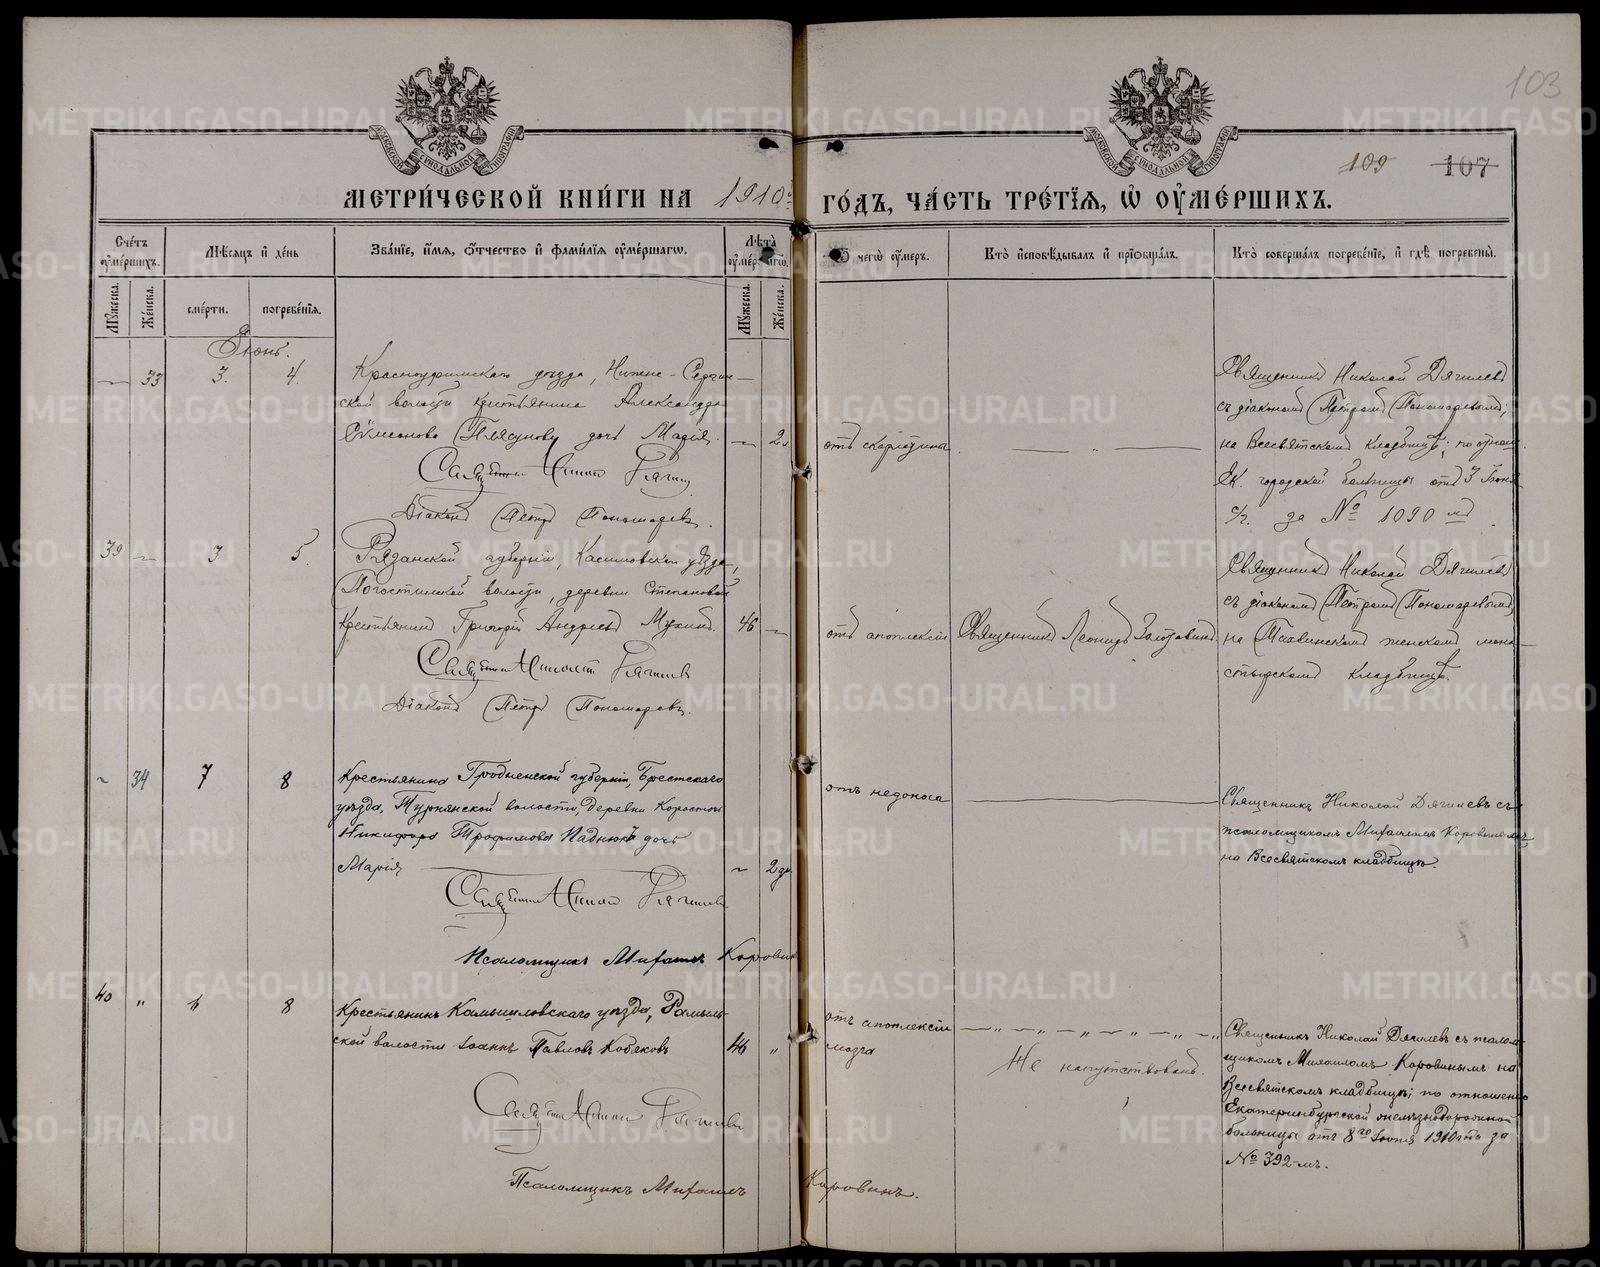 103
109 107
МОСКОВСКОЙ СѴНОДАЛЬНОЙ ТИПОГРАФІИ
МОСКОВСКОЙ СѴНОДАЛЬНОЙ ТИПОГРАФІИ
МЕТРИ́ЧЕСКОЙ КНИ́ГИ НА 1910й ГО́ДЪ, ЧА́СТЬ ТРЕ́ТІѦ, Ѡ҆ ОУ҆МЕ́РШИХЪ.
Счетъ оумершихъ.
Мужеска.
Женска.
Мѣсяцъ и день
смерти.
погребенія.
Званіе, имя, отчество и фамилія оумершагѡ.
Лѣта оумершагѡ.
Мужеска.
Женска.
Ѿ чегѡ оумеръ.
Кто исповѣдывалъ и пріобщалъ.
Кто совершалъ погребеніе, и гдѣ погребены.
Іюнь.
— 33 3. 4.
Красноуфимскаго уѣзда, Нижне-Сергин-
ской волости крестьянина Александра
Сѵмеонова Плясунова дочь Марія. — 2 л.
Священникъ Николай Дягилевъ
Діаконъ Петръ Пономаревъ.
отъ скарлатины
— „ —
Священникъ Николай Дягилевъ
съ діакономъ Петромъ Пономаревымъ;
на Всесвятскомъ кладбищѣ; по отнош.
Ек. городской больницы отъ 3 Іюня
с/г. за № 1090 мъ
39 — 3 5.
Рязанской губерніи, Касимовскаго уѣзда,
Погостинской волости, деревни Степановой
Крестьянинъ Григорій Андреевъ Мухинъ. 46 —
Священникъ Николай Дягилевъ
Діаконъ Петръ Пономаревъ.
отъ апоплексіи
Священникъ Леонидъ
Священникъ Николай Дягилевъ
съ діакономъ Петромъ Пономаревымъ,
на Тихвинскомъ женскомъ мона-
стырскомъ кладбищѣ.
~ 34 7 8
Крестьянина Гродненской губерніи, Брестскаго
уѣзда, Турнянской волости, деревни
Никифора Трофимова дочь
Марія ~ 2 дн.
Священникъ Николай Дягилевъ
Псаломщикъ Михаилъ Коровинъ
отъ недоноса
Священникъ Николай Дягилевъ съ
псаломщикомъ Михаиломъ Коровинымъ
на Всесвятскомъ кладбищѣ.
40 „ 6 8
Крестьянинъ Камышловскаго уѣзда, Рамыль-
ской волости Іоаннъ Павловъ Кобяковъ 46 „
Священникъ Николай Дягилевъ
Псаломщикъ Михаилъ Коровинъ.
отъ апоплексіи
мозга
— „ — „ — „ — „ — „
Не напутствованъ.
Священникъ Николай Дягилевъ съ псалом-
щикомъ Михаиломъ Коровинымъ на
Всесвятскомъ кладбищѣ; по отношенію
Екатеринбургской желѣзнодорожной
больницы отъ 8го Іюня 1910 года за
№ 392-мъ.
METRIKI.GASO-URAL.RU